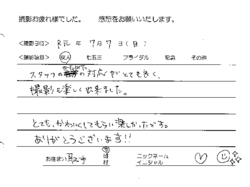 撮影お疲れ様でした。 感想をお願いいたします。
<撮影日> R元年 7月7日(日)
成人 七五三 ブライダル その他
スタッフの の対応がとても良く、
撮影も楽しく出来ました。
とても、かわいくしてもらい楽しかったです。
ありがとうございます!!
お住まい
市
町
村
ニックネーム
イニシャル